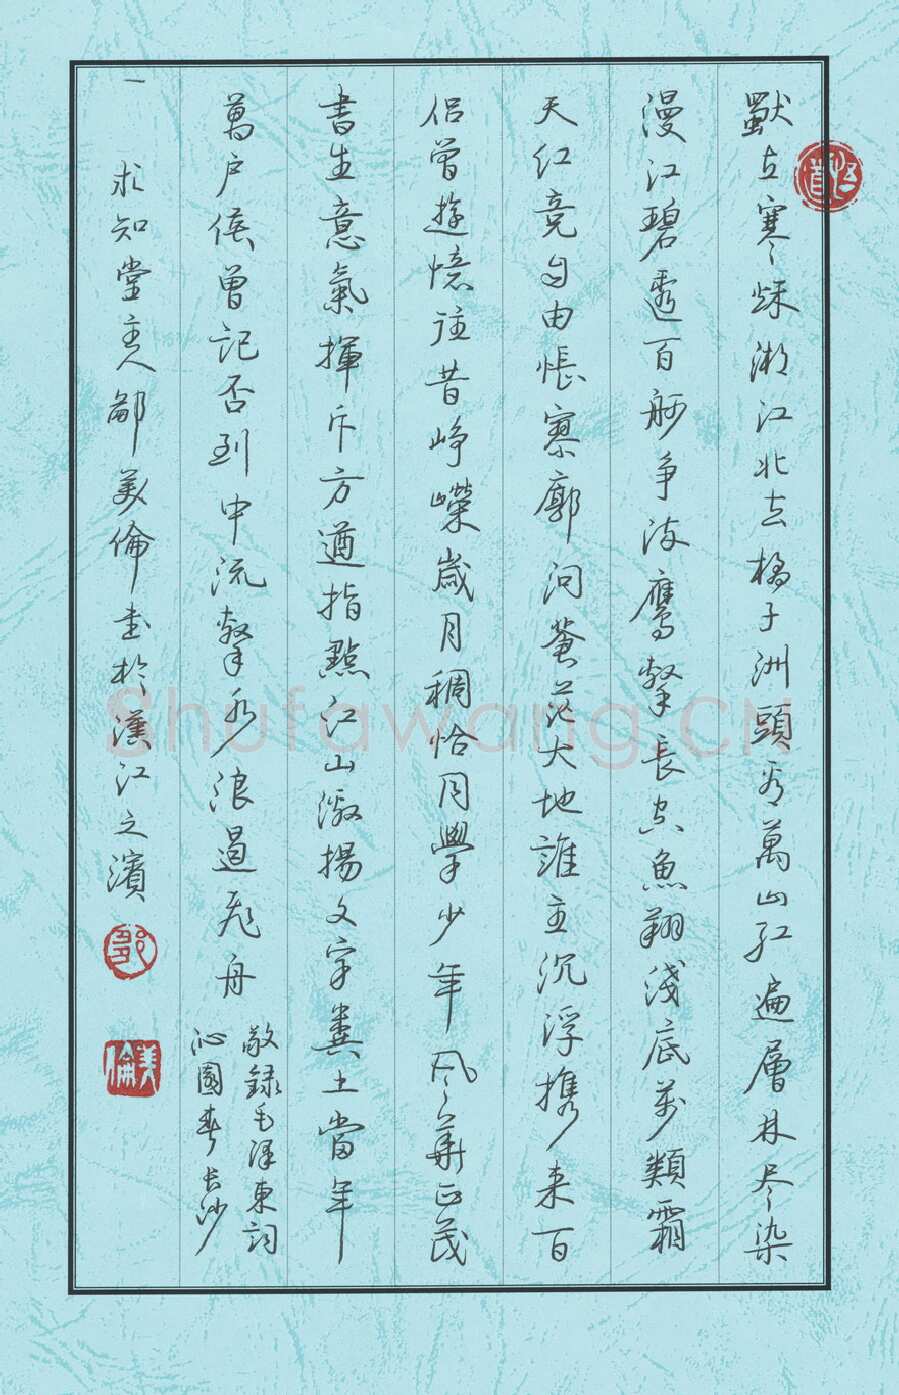 獨立寒秌湘江北去橘子洲頭看萬山红遍層林尽染
漫江碧透百舸争流鷹擊長空魚翔淺底萬類霜
天红竞自由悵寥廓问蒼茫大地誰主沉浮携来百
侣曾遊憶往昔峥嶸歲月稠恰同學少年风華正茂
書生意氣揮斥方遒指點江山激揚文字糞土當年
萬户侯曾記否到中流擊水浪遏飛舟
敬録毛澤東詞
沁園春長沙
求知堂主人鄒美倫書於漢江之濱
鄒
美倫
Shufawang.CN